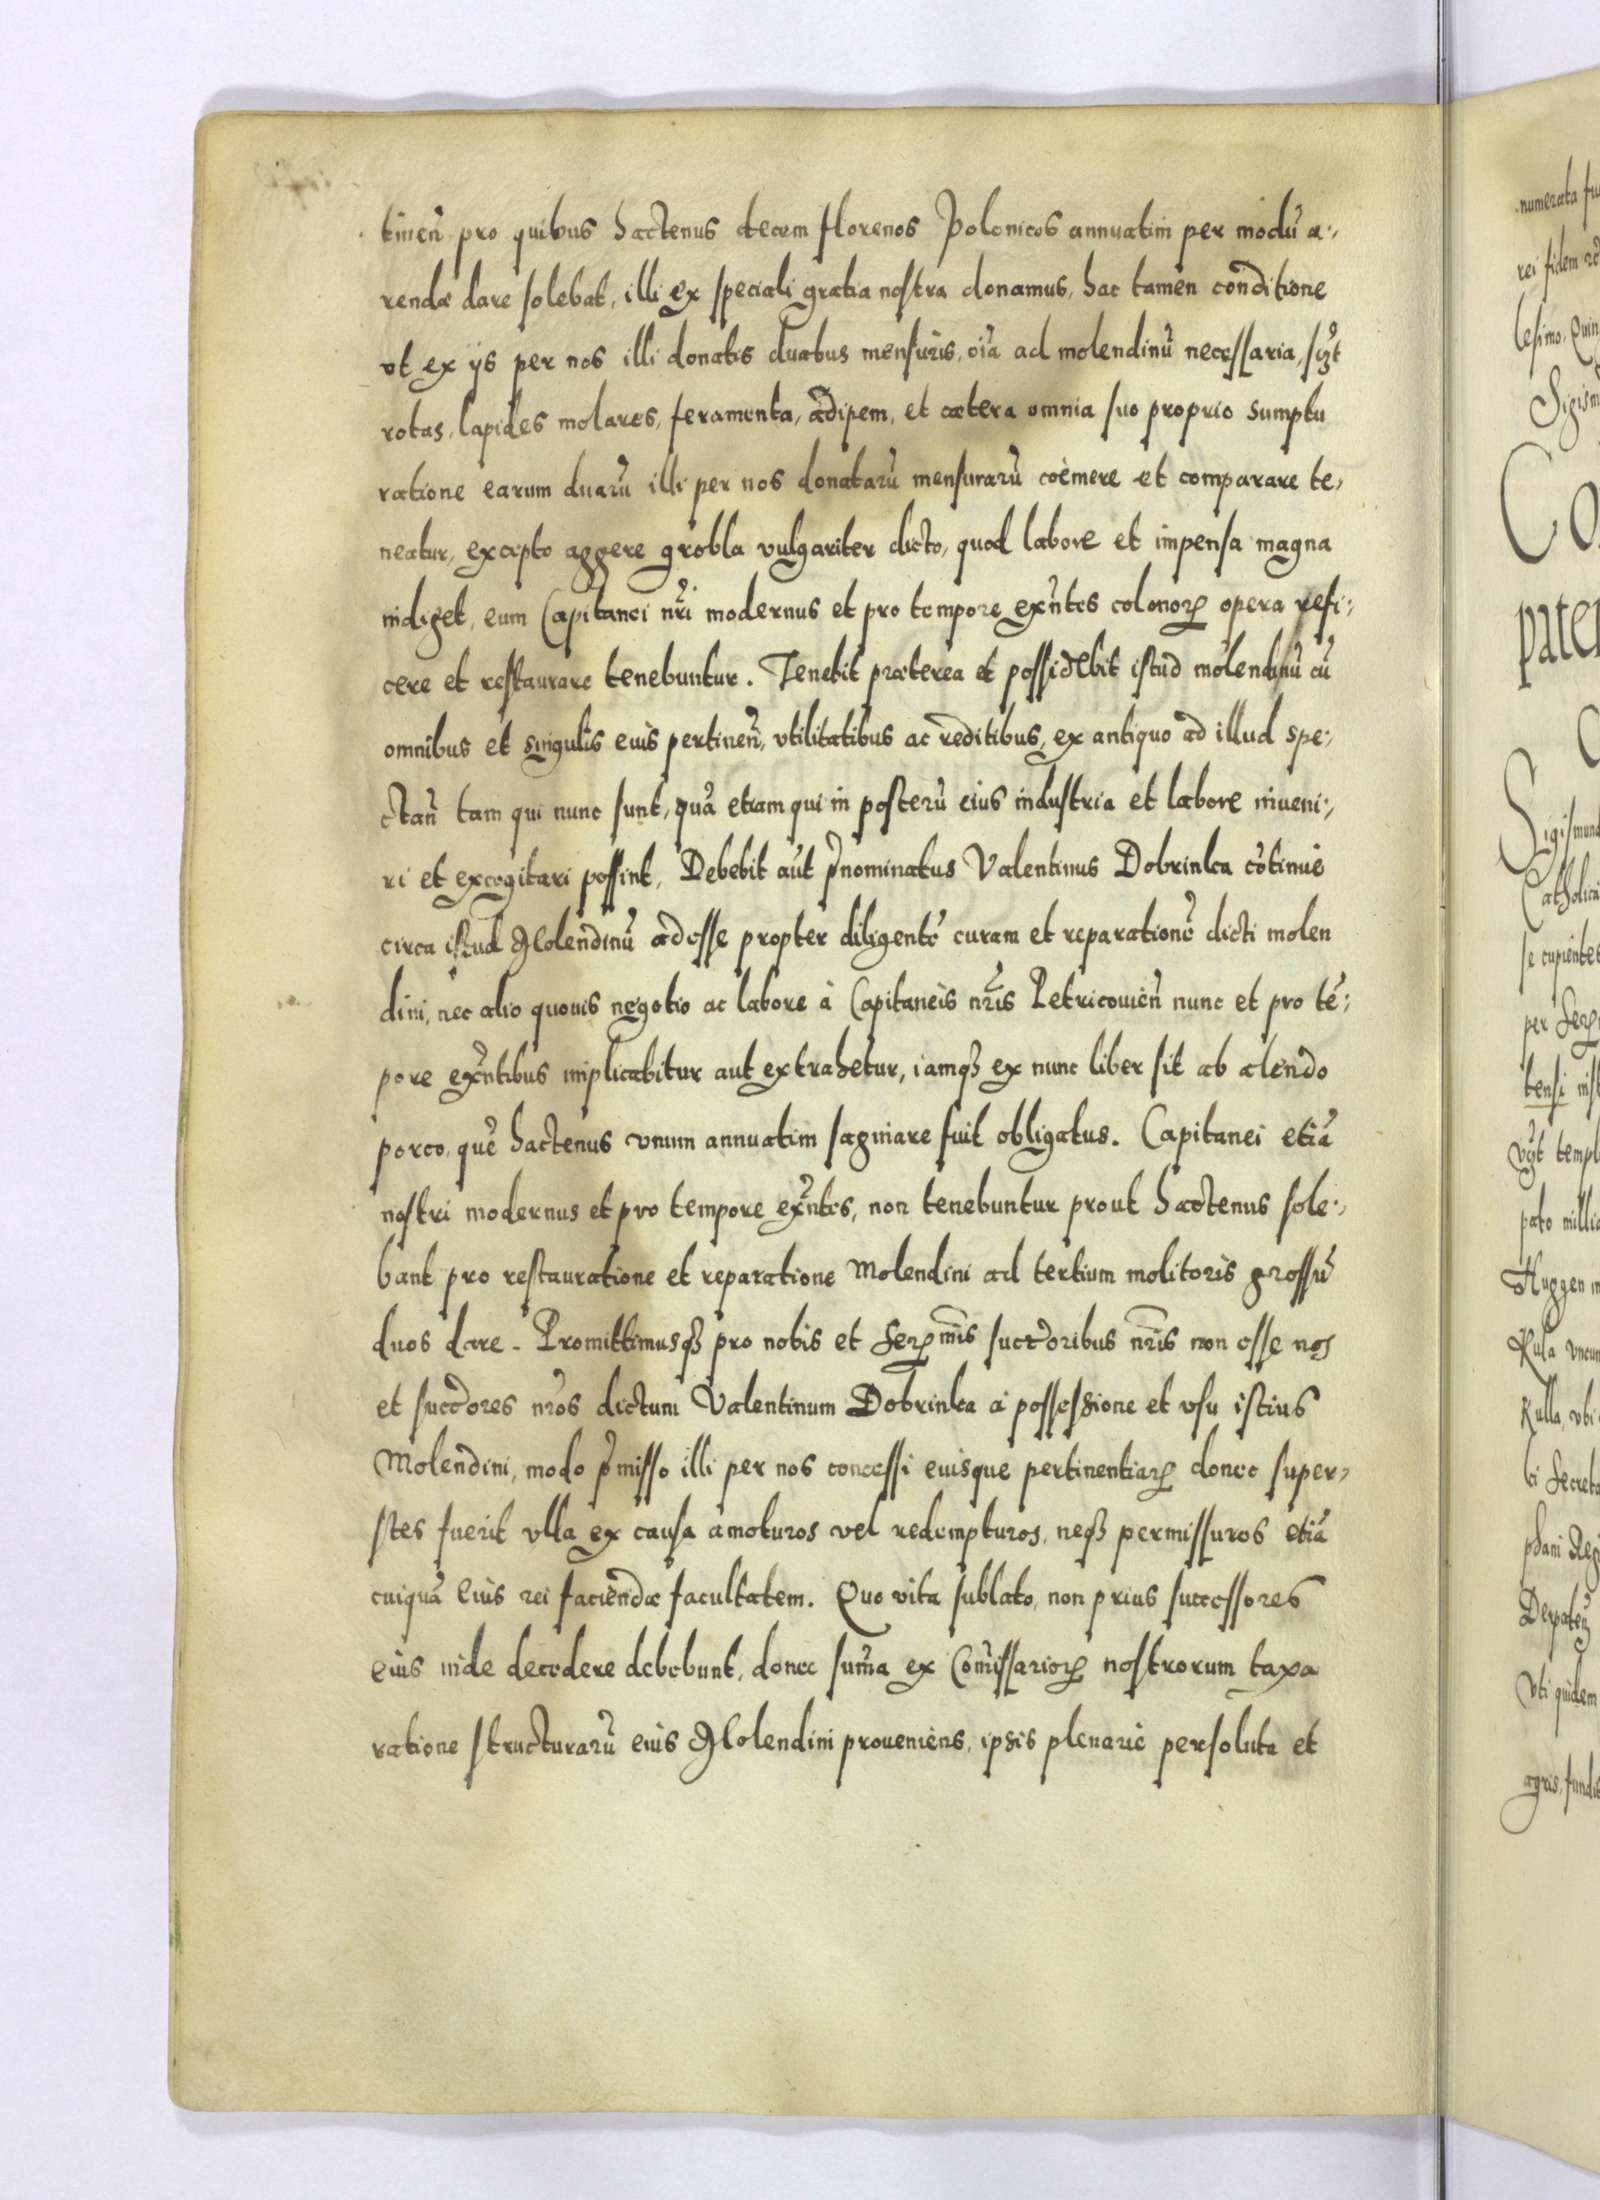 tinen̄ pro quibus hactenus decem florenos Polonicos annuatim per modū a-,
rendæ dare solebat, illi ex speciali gratia nostra donamus, hac tamen conditione
vt ex ijs per nos illi donatis duabus mensuris, oīa ad molendinū necessaria,
rotas, lapides molares, feramenta, adipem, et cætera omnia suo proprio sumptu
ratione earum duarū illi per nos donatarū mensurarū coëmere et comparare te,
neatur, excepto aggere grobla vulgariter dicto, quod labore et impensa magna
indiget, eum Capitanei nr̄i modernus et pro tempore exn̄tes colonorꝝ opera refi-,
cere et restaurare tenebuntur. Tenebit præterea et possidebit istud molendinū cū
omnibus et singulis eius pertinen̄, vtilitatibus ac reditibus, ex antiquo ad illud spe-,
ctan̄ tam qui nunc sunt, quā etiam qui in posterū eius industria et labore inueni-,
ri et excogitari possint, Debebit aūt p̄nominatus Valentinus Dobrinka cōtinuè
circa istud Molendinū adesse propter diligentē curam et reparationē dicti molen
dini, nec alio quouis negotio ac labore à Capitaneis nr̄is Petricouien̄ nunc et pro tē-,
pore exn̄tibus implicabitur aut extrahetur, iamqꝫ ex nunc liber sit ab alendo
porco, quē hactenus vnum annuatim saginare fuit obligatus. Capitanei etiā
nostri modernus et pro tempore exn̄tes, non tenebuntur prout hactenus sole-,
bant pro restauratione et reparatione Molendini ad tertium molitoris grossū
duos dare. Promittimusqꝫ pro nobis et Serꝝmis succ̄oribus nr̄is non esse nos
et succ̄ores nr̄os dictum Valentinum Dobrinka à possessione et vsu istius
Molendini, modo p̄misso illi per nos concessi eiusque pertinentiarꝝ donec super,
stes fuerit vlla ex causa amoturos vel redempturos, neqꝫ permissuros etiā
cuiquā eius rei faciendæ facultatem. Quo vita sublato, non prius successores
eius inde decedere debebunt, donec sum̄a ex Com̄issariorꝝ nostrorum taxa
ratione structurarū eius Molendini proueniens, ipsis plenariè persoluta et
numerata
rei fidem
lesimo, Quin
Sigism
Co
pate
Sigismund
Catholic
se cupientes
per Serꝝ
tensi
templ
pato milli
Kula vncum
Kulla, vbi
Secreta
Vti quidem
agris, fundis